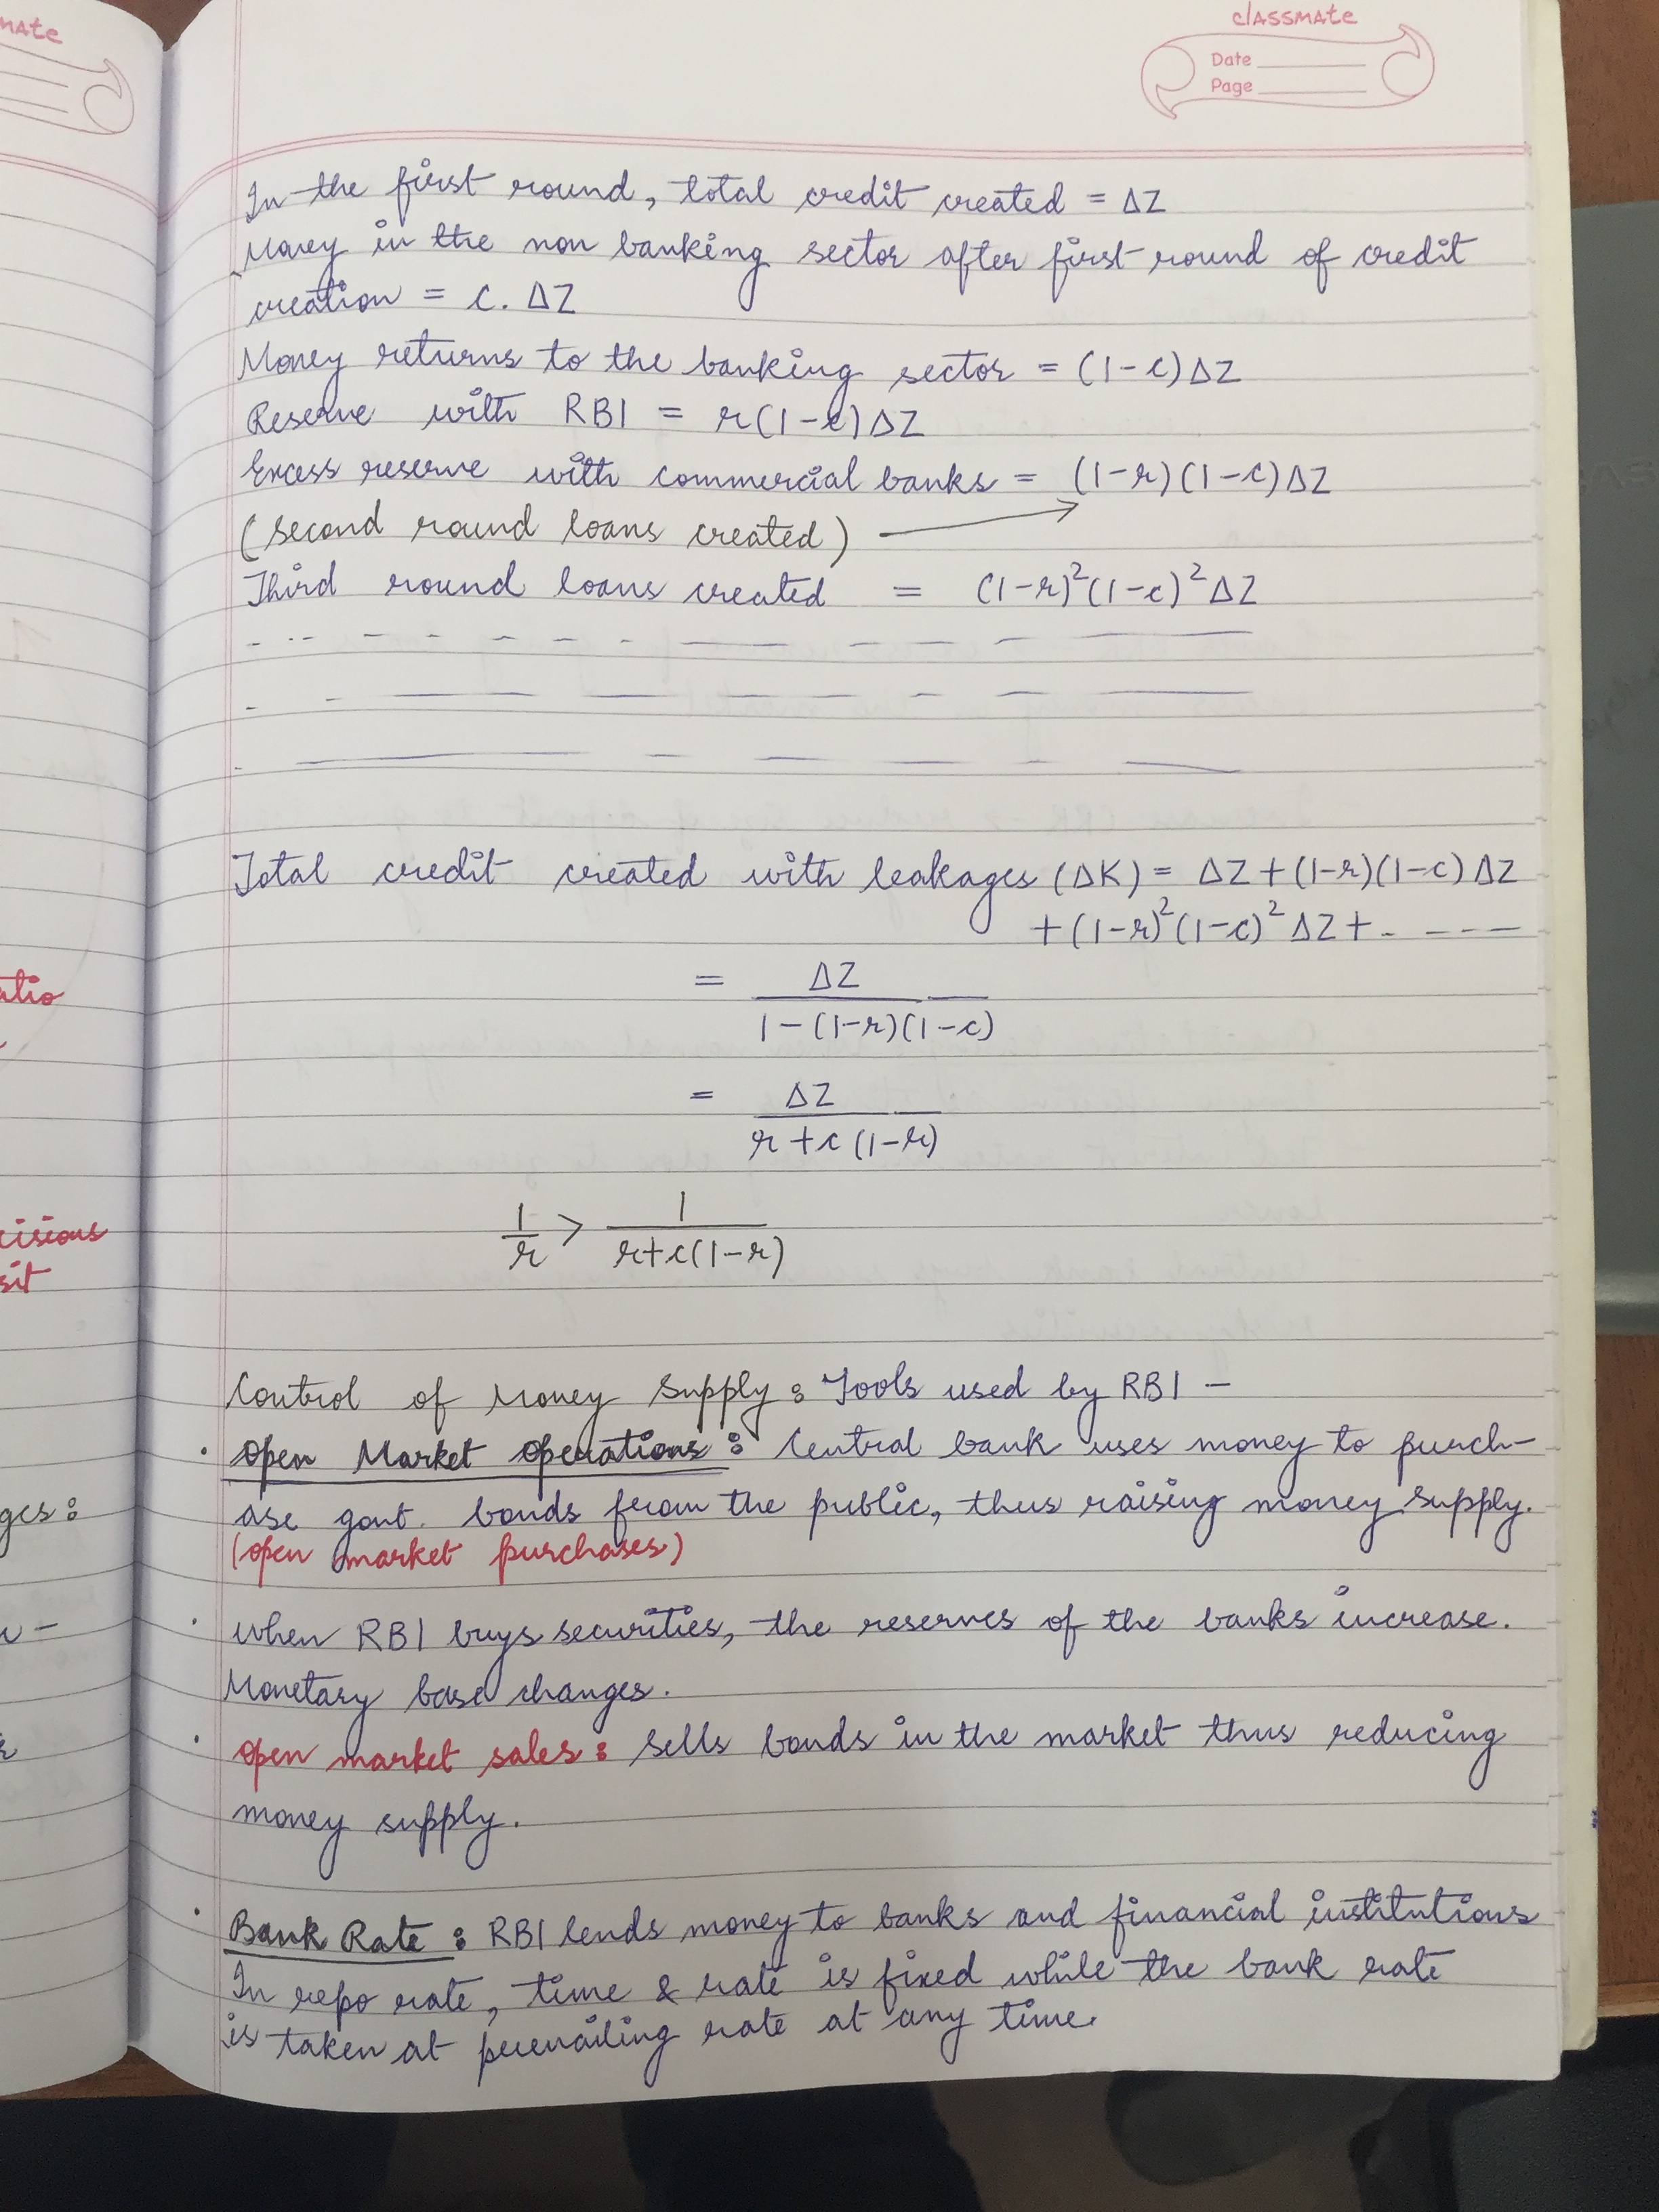 mate
classmate
Date
Page
In the first round, total credit created = ΔZ
Money in the non banking sector after first round of credit
creation = c. ΔZ
Money returns to the banking sector = (1-c)ΔZ
Reserve with RBI = r(1-c)ΔZ
Excess reserve with commercial banks = (1-r)(1-c)ΔZ
(second round loans created) →
Third round loans created = (1-r)²(1-c)²ΔZ
Total credit created with leakages (ΔK) = ΔZ+(1-r)(1-c)ΔZ
+(1-r)²(1-c)²ΔZ+- - - - -
= ΔZ
1-(1-r)(1-c)
= ΔZ
r+c(1-r)
1/r > 1/r+c(1-r)
Control of Money Supply : Tools used by RBI -
. Open Market Operations : Central bank uses money to purch-
ase govt. bonds from the public, thus raising money supply.
(open market purchases)
. when RBI buys securities, the reserves of the banks increase.
Monetary base changes.
. open market sales : sells bonds in the market thus reducing
money supply.
. Bank Rate : RBI lends money to banks and financial institutions
In repo rate, time & rate is fixed while the bank rate
is taken at prevailing rate at any time.
atio
cisions
sit
ges :